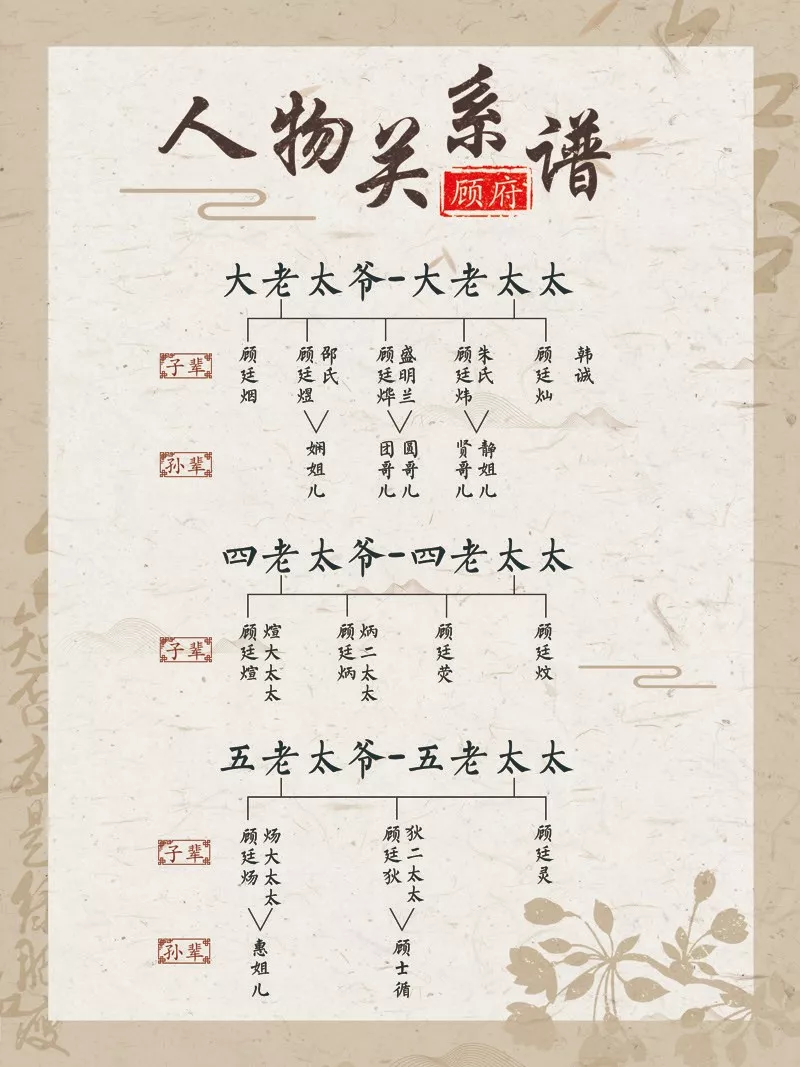 人物关系谱
顾府
大老太爷-大老太太
子辈
顾廷烟
顾廷煜
邵氏
顾廷烨
盛明兰
顾廷炜
朱氏
顾廷灿
韩诚
孙辈
娴姐儿
团哥儿
圆哥儿
贤哥儿
静姐儿
四老太爷-四老太太
子辈
顾廷煊
煊大太太
顾廷炳
炳二太太
顾廷荧
顾廷炆
五老太爷-五老太太
子辈
顾廷炀
炀大太太
顾廷狄
狄二太太
顾廷灵
孙辈
惠姐儿
顾士循